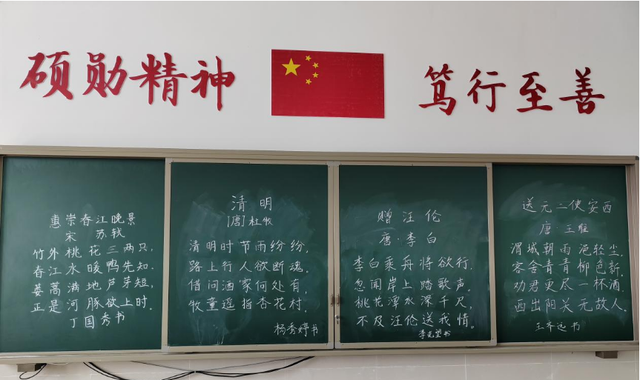 硕勋精神
笃行至善
惠崇春江晚景
宋 苏轼
竹外桃花三两只,
春江水暖鸭先知。
蒌蒿满地芦芽短,
正是河豚欲上时。
丁国秀书
清明
[唐]杜牧
清明时节雨纷纷,
路上行人欲断魂。
借问酒家何处有,
牧童遥指杏花村。
杨秀婷书
赠汪伦
唐·李白
李白乘舟将欲行,
忽闻岸上踏歌声。
桃花潭水深千尺,
不及汪伦送我情。
送元二使安西
唐 王维
渭城朝雨浥轻尘,
客舍青青柳色新。
劝君更尽一杯酒,
西出阳关无故人。